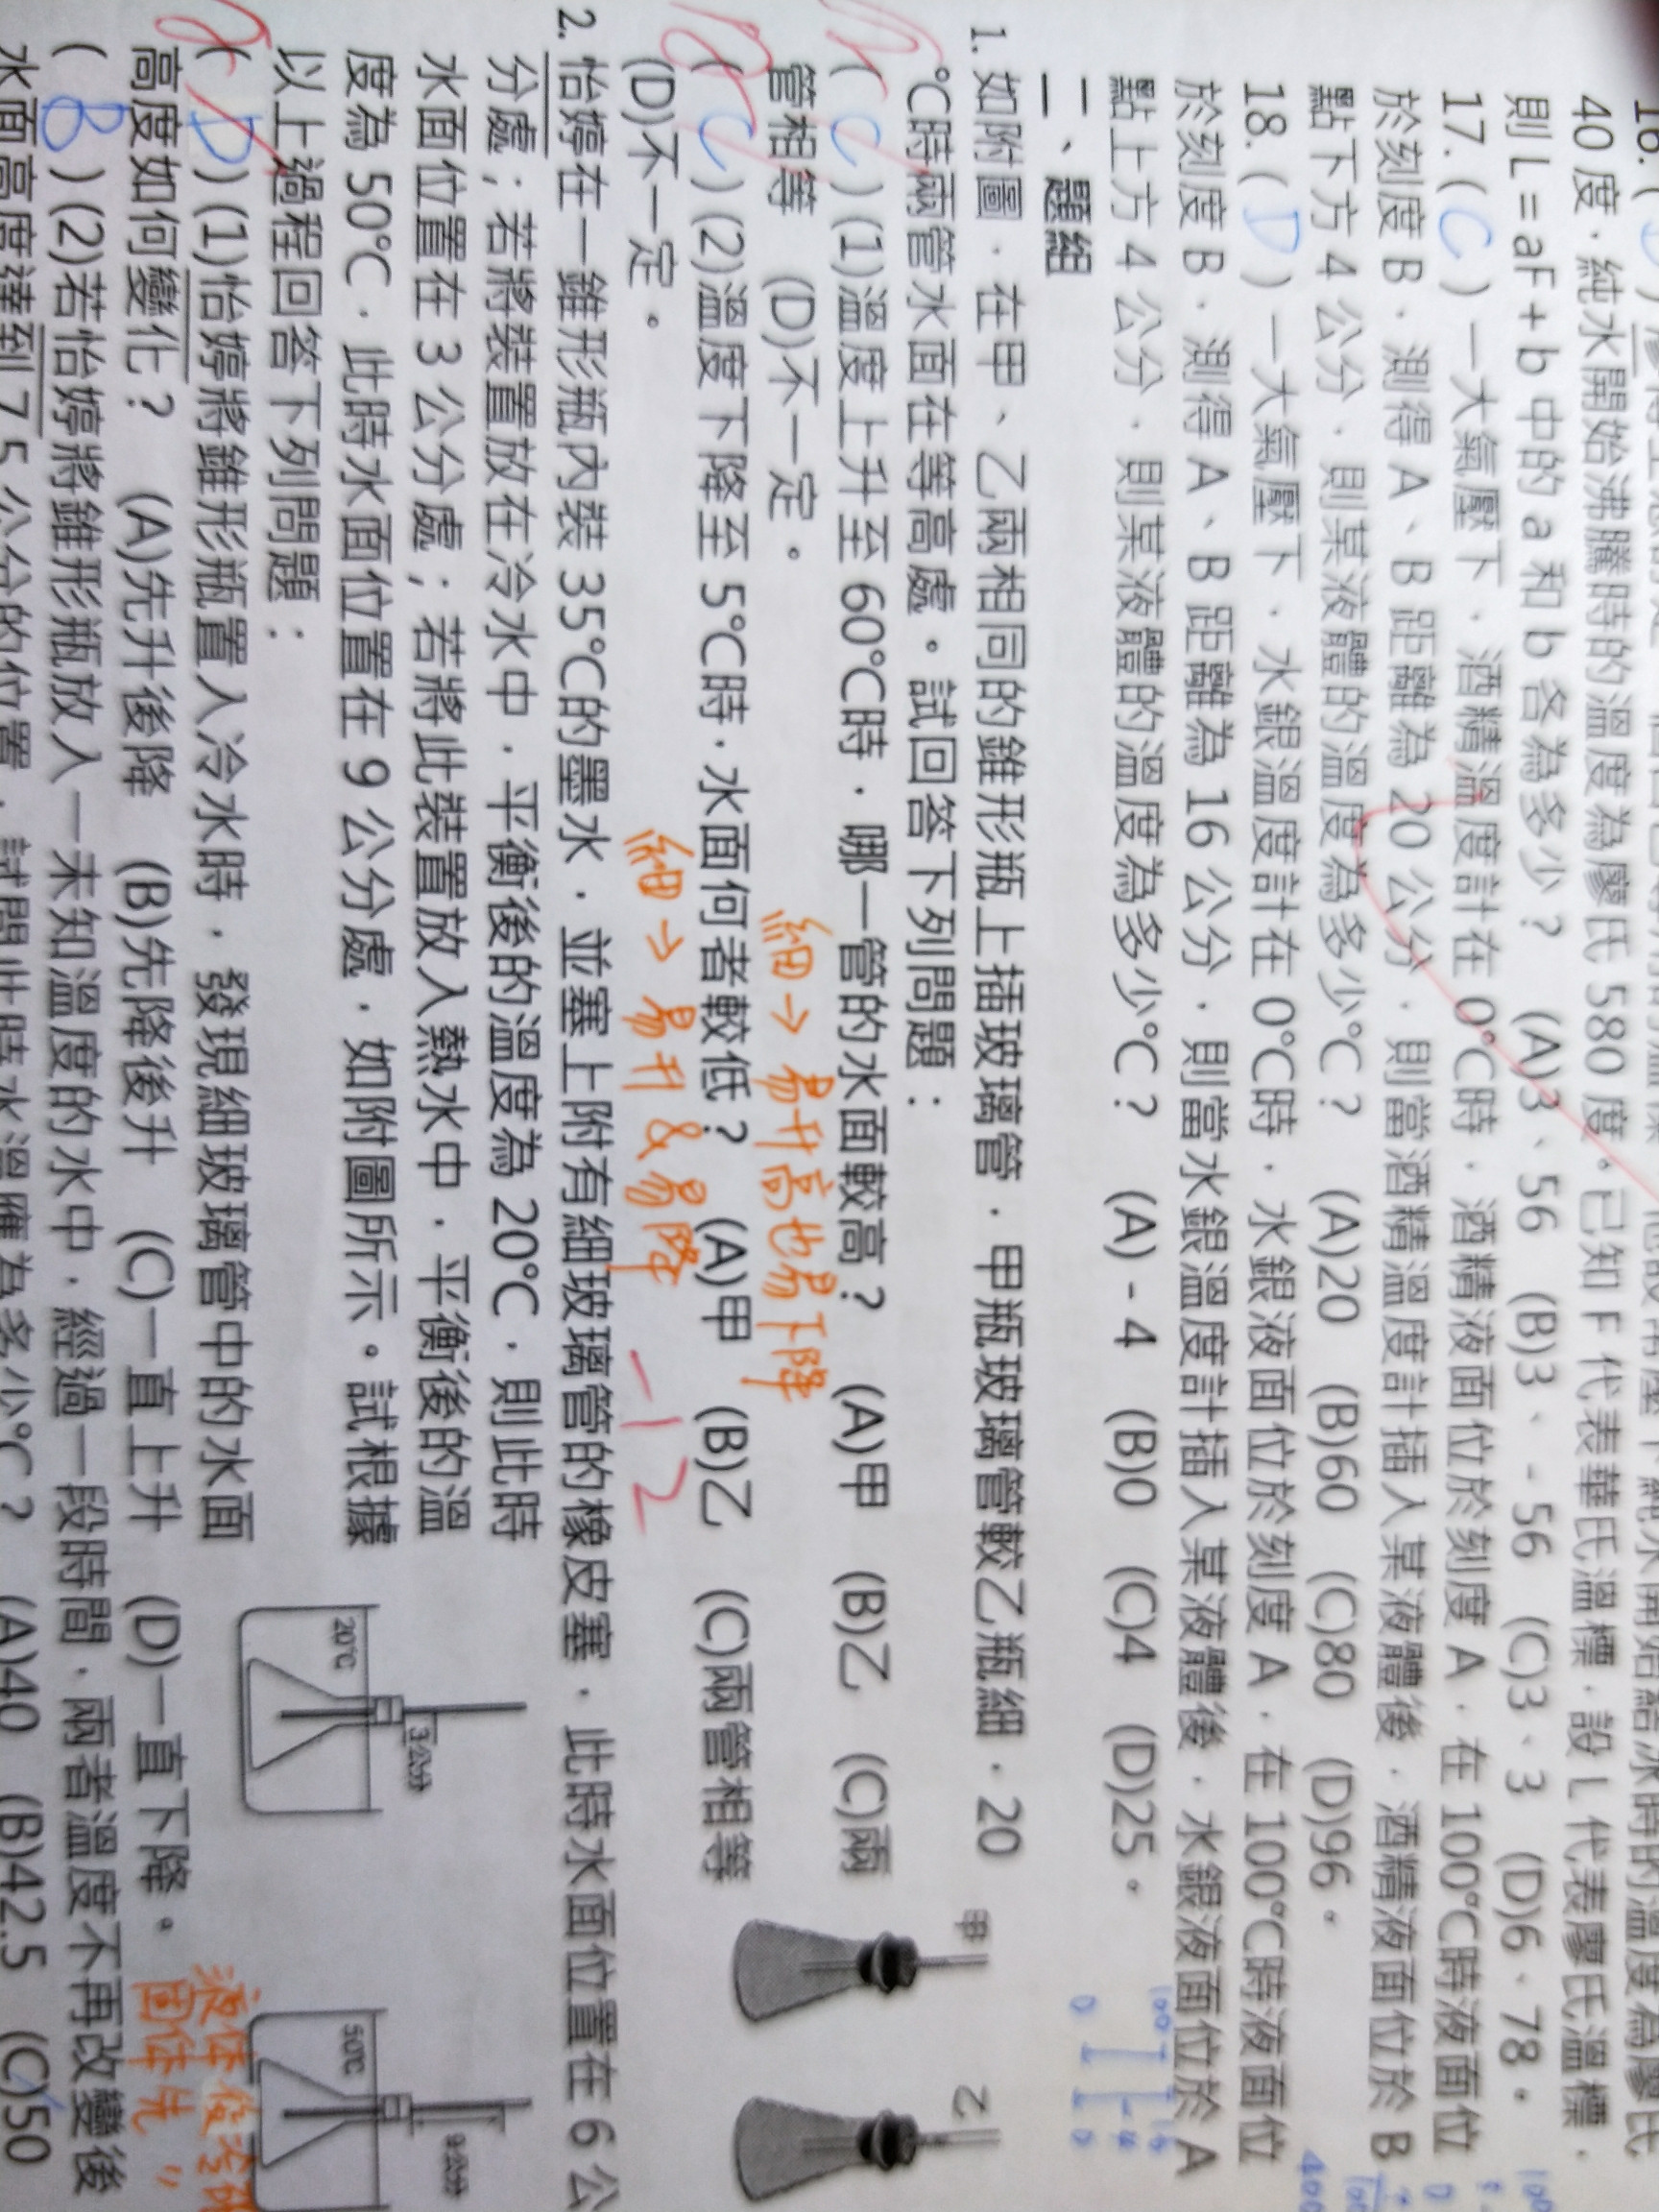 40 度，純水開始沸騰時的溫度為廖氏 580 度。已知 F 代表華氏溫標，設 L 代表廖氏溫標，
則 L = aF + b 中的 a 和 b 各為多少？ (A)3、56 (B)3、- 56 (C)3、3 (D)6、78。
17. ( C ) 一大氣壓下，酒精溫度計在 0℃時，酒精液面位於刻度 A，在 100℃時液面位
於刻度 B，測得 A、B 距離為 20 公分，則當酒精溫度計插入某液體後，酒精液面位於 B
點下方 4 公分，則某液體的溫度為多少℃？ (A)20 (B)60 (C)80 (D)96。
18. ( D ) 一大氣壓下，水銀溫度計在 0℃時，水銀液面位於刻度 A，在 100℃時液面位
於刻度 B，測得 A、B 距離為 16 公分，則當水銀溫度計插入某液體後，水銀液面位於 A
點上方 4 公分，則某液體的溫度為多少℃？ (A) - 4 (B)0 (C)4 (D)25。
二、題組
1. 如附圖，在甲、乙兩相同的錐形瓶上插玻璃管，甲瓶玻璃管較乙瓶細，20
℃時兩管水面在等高處。試回答下列問題：
( C ) (1)溫度上升至 60℃時，哪一管的水面較高？ (A)甲 (B)乙 (C)兩
管相等 (D)不一定。
細→易升高也易下降
( C ) (2)溫度下降至 5℃時，水面何者較低？ (A)甲 (B)乙 (C)兩管相等
(D)不一定。
細→易升&易降
-12
甲
乙
2. 怡婷在一錐形瓶內裝 35℃的墨水，並塞上附有細玻璃管的橡皮塞，此時水面位置在 6 公
分處；若將裝置放在冷水中，平衡後的溫度為 20℃，則此時
水面位置在 3 公分處；若將此裝置放入熱水中，平衡後的溫
度為 50℃，此時水面位置在 9 公分處，如附圖所示。試根據
以上過程回答下列問題：
20℃
3公分
50℃
9公分
( D ) (1)怡婷將錐形瓶置入冷水時，發現細玻璃管中的水面
高度如何變化？ (A)先升後降 (B)先降後升 (C)一直上升 (D)一直下降。
( B ) (2)若怡婷將錐形瓶放入一未知溫度的水中，經過一段時間，兩者溫度不再改變後
水面高度達到 7.5 公分的位置，試問此時水溫應為多少℃？ (A)40 (B)42.5 (C)50